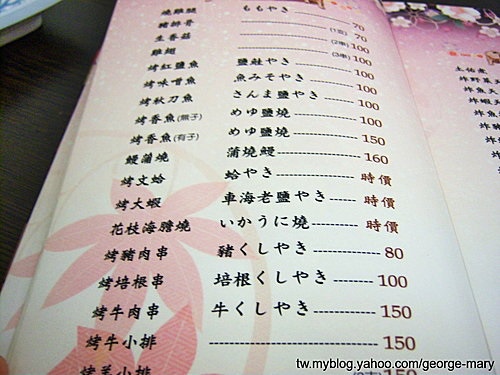 燒雞腿 ももやき 70
豬排骨 (1支) 70
生香菇 (2串) 100
雞翅 (3串) 100
烤紅鹽魚 鹽鮭やき 100
烤味噌魚 魚みそやき 100
烤秋刀魚 さんま鹽やき 100
烤香魚(無子) めゆ鹽燒 100
烤香魚(有子) めゆ鹽燒 150
鰻蒲燒 蒲燒鰻 160
烤文蛤 蛤やき 時價
烤大蝦 車海老鹽やき 時價
花枝海膽燒 いかうに燒 時價
烤豬肉串 豬くしやき 80
烤培根串 培根くしやき 100
烤牛肉串 牛くしやき 150
烤牛小排 150
烤羊小排 150
土佑煮
炸野
炸魚
炸蝦
炸魚
炸豬
炸
tw.myblog.yahoo.com/george-mary